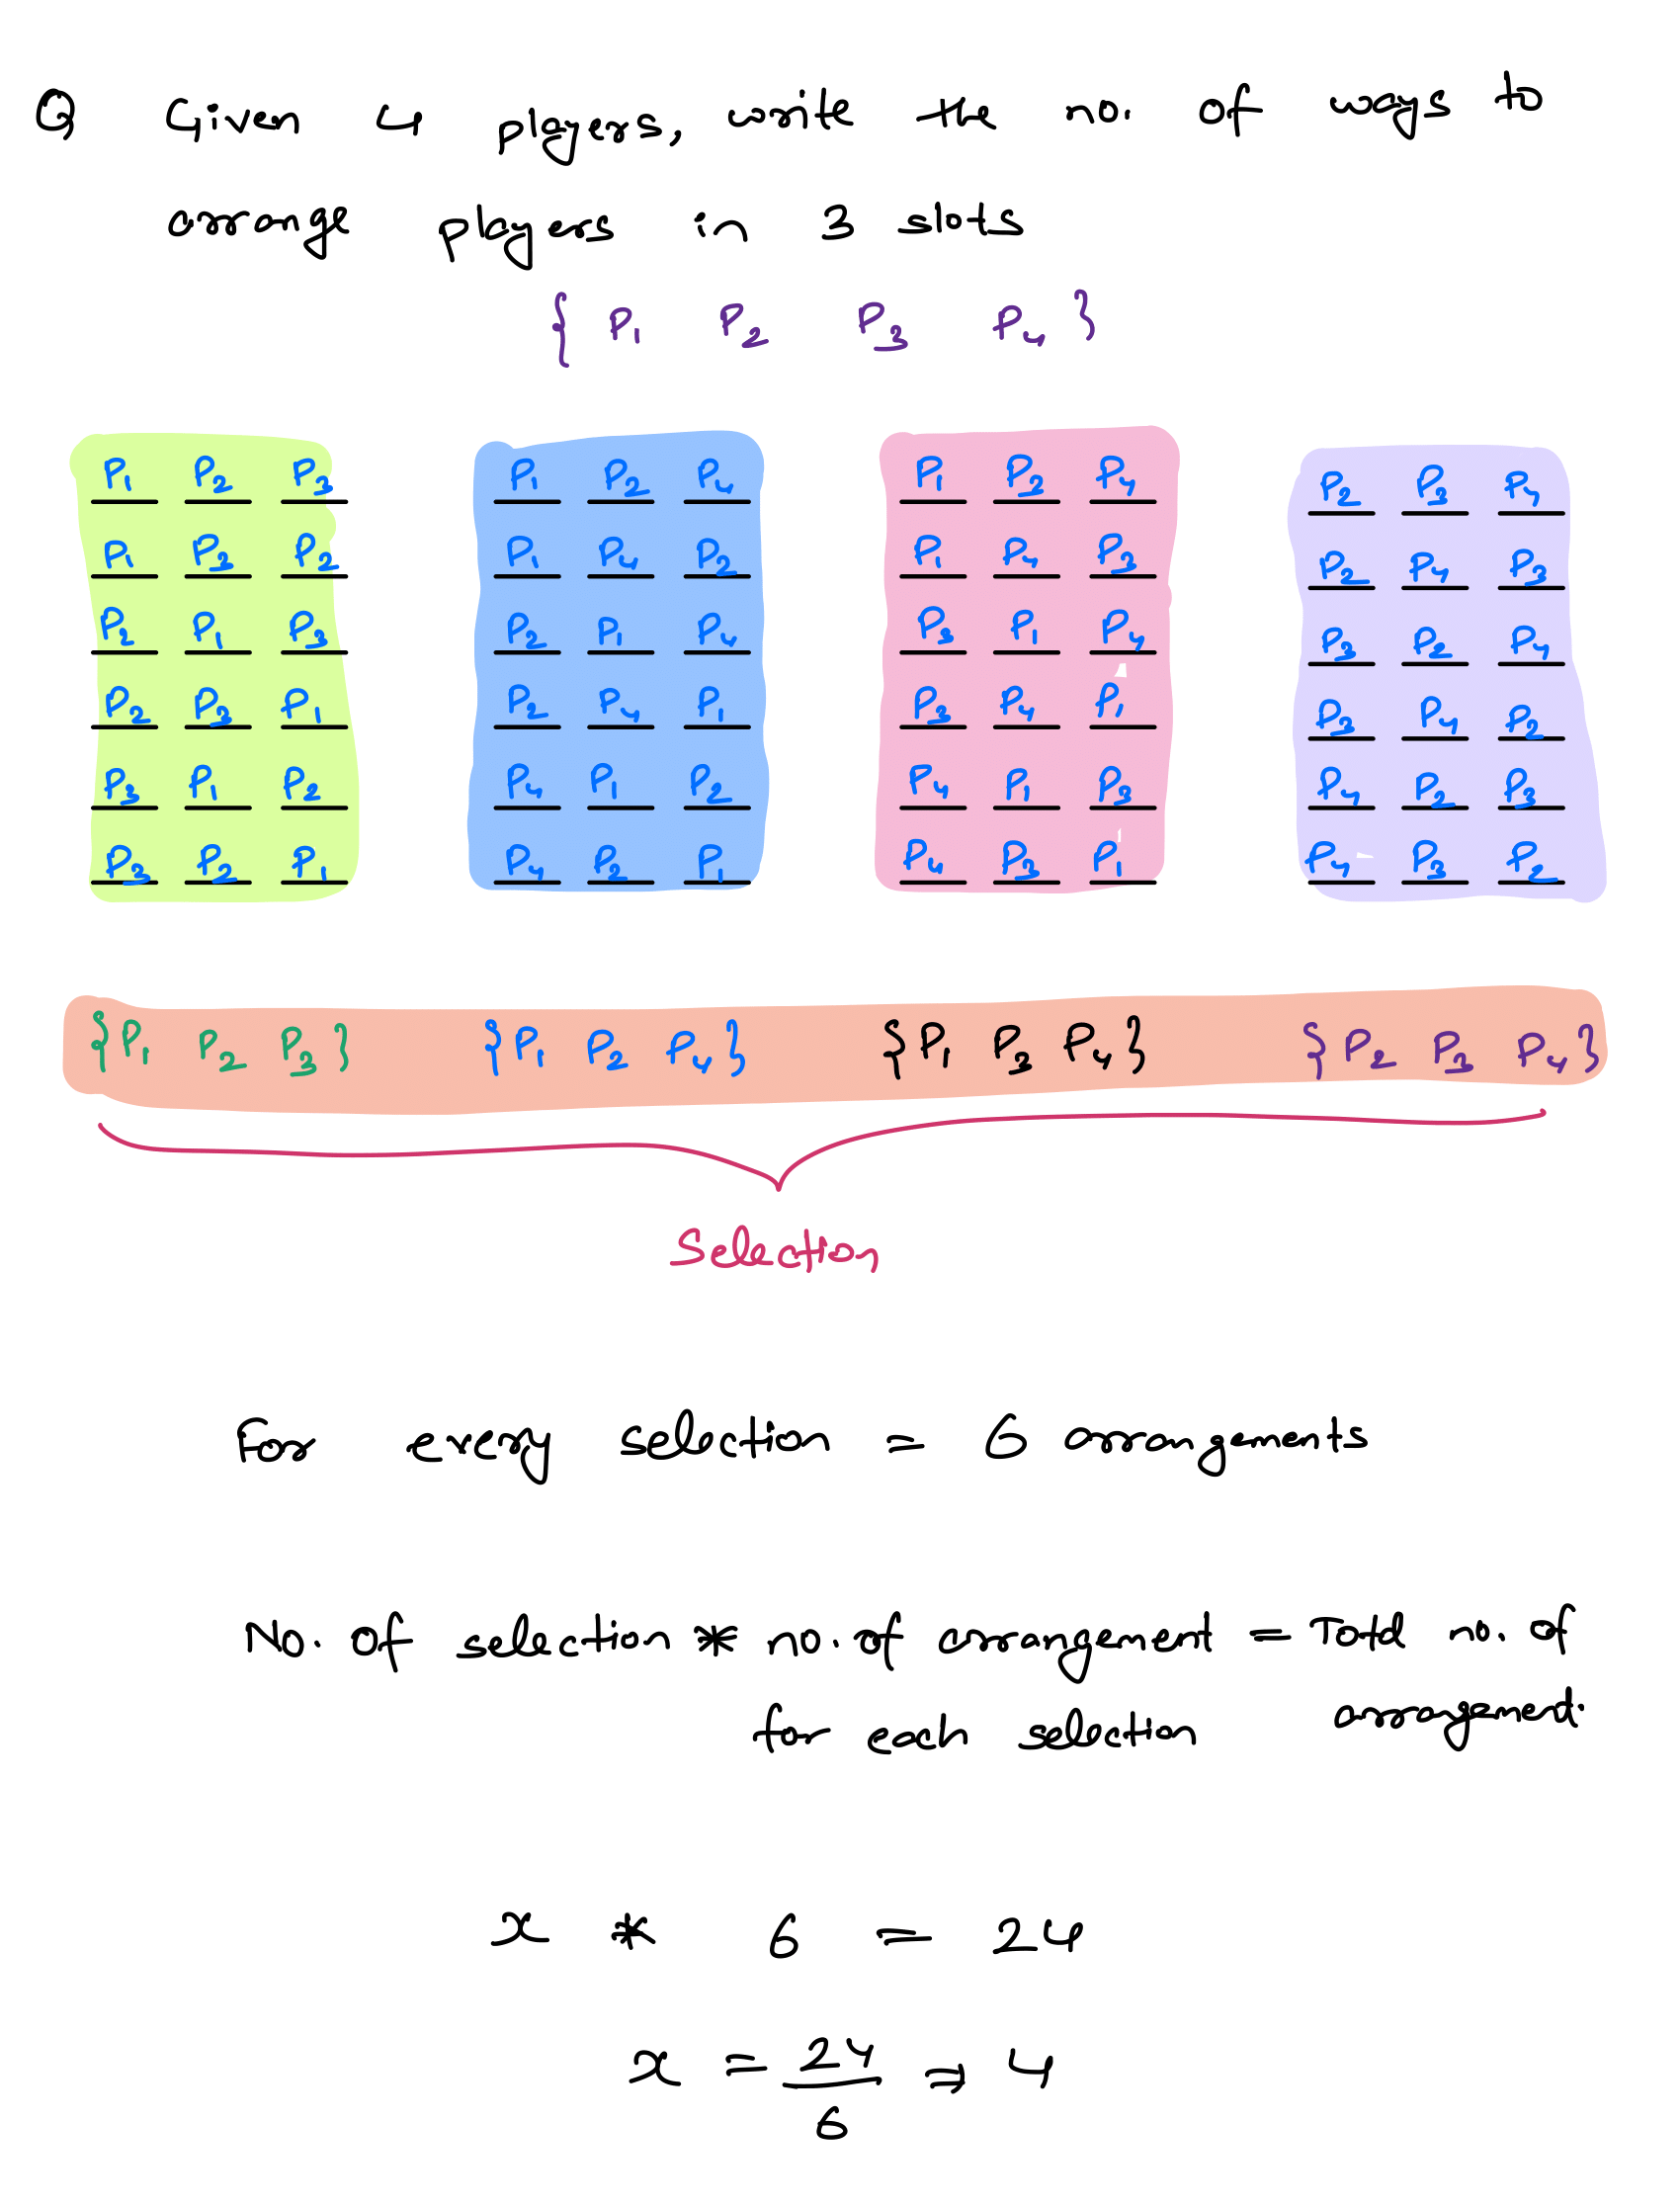 Q Given 4 players, write the no. of ways to
arrange players in 3 slots
{ P1 P2 P3 P4 }
P1 P2 P3 P1 P2 P4 P1 P2 P4 P2 P3 P4
P1 P3 P2 P1 P4 P2 P1 P4 P3 P2 P4 P3
P2 P1 P3 P2 P1 P4 P3 P1 P4 P3 P2 P4
P2 P3 P1 P2 P4 P1 P3 P4 P1 P3 P4 P2
P3 P1 P2 P4 P1 P2 P4 P1 P3 P4 P2 P3
P3 P2 P1 P4 P2 P1 P4 P3 P1 P4 P3 P2
{P1 P2 P3} {P1 P2 P4} {P1 P3 P4} {P2 P3 P4}
Selection
For every selection = 6 arrangements
No. of selection * no. of arrangement = Total no. of
for each selection arrangement.
x * 6 = 24
x = 24/6 => 4